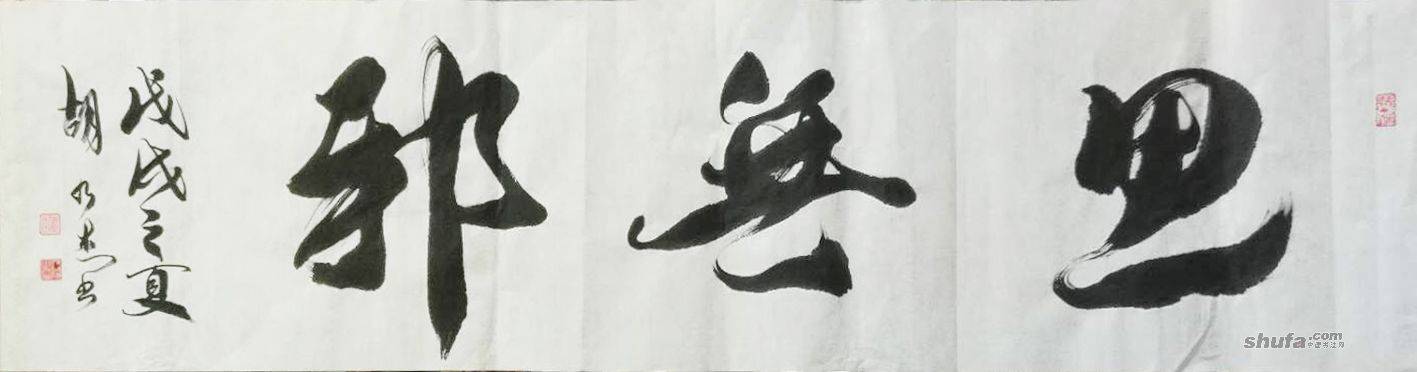 思無邪
戊戌之夏
胡乃杰书
shufa.com